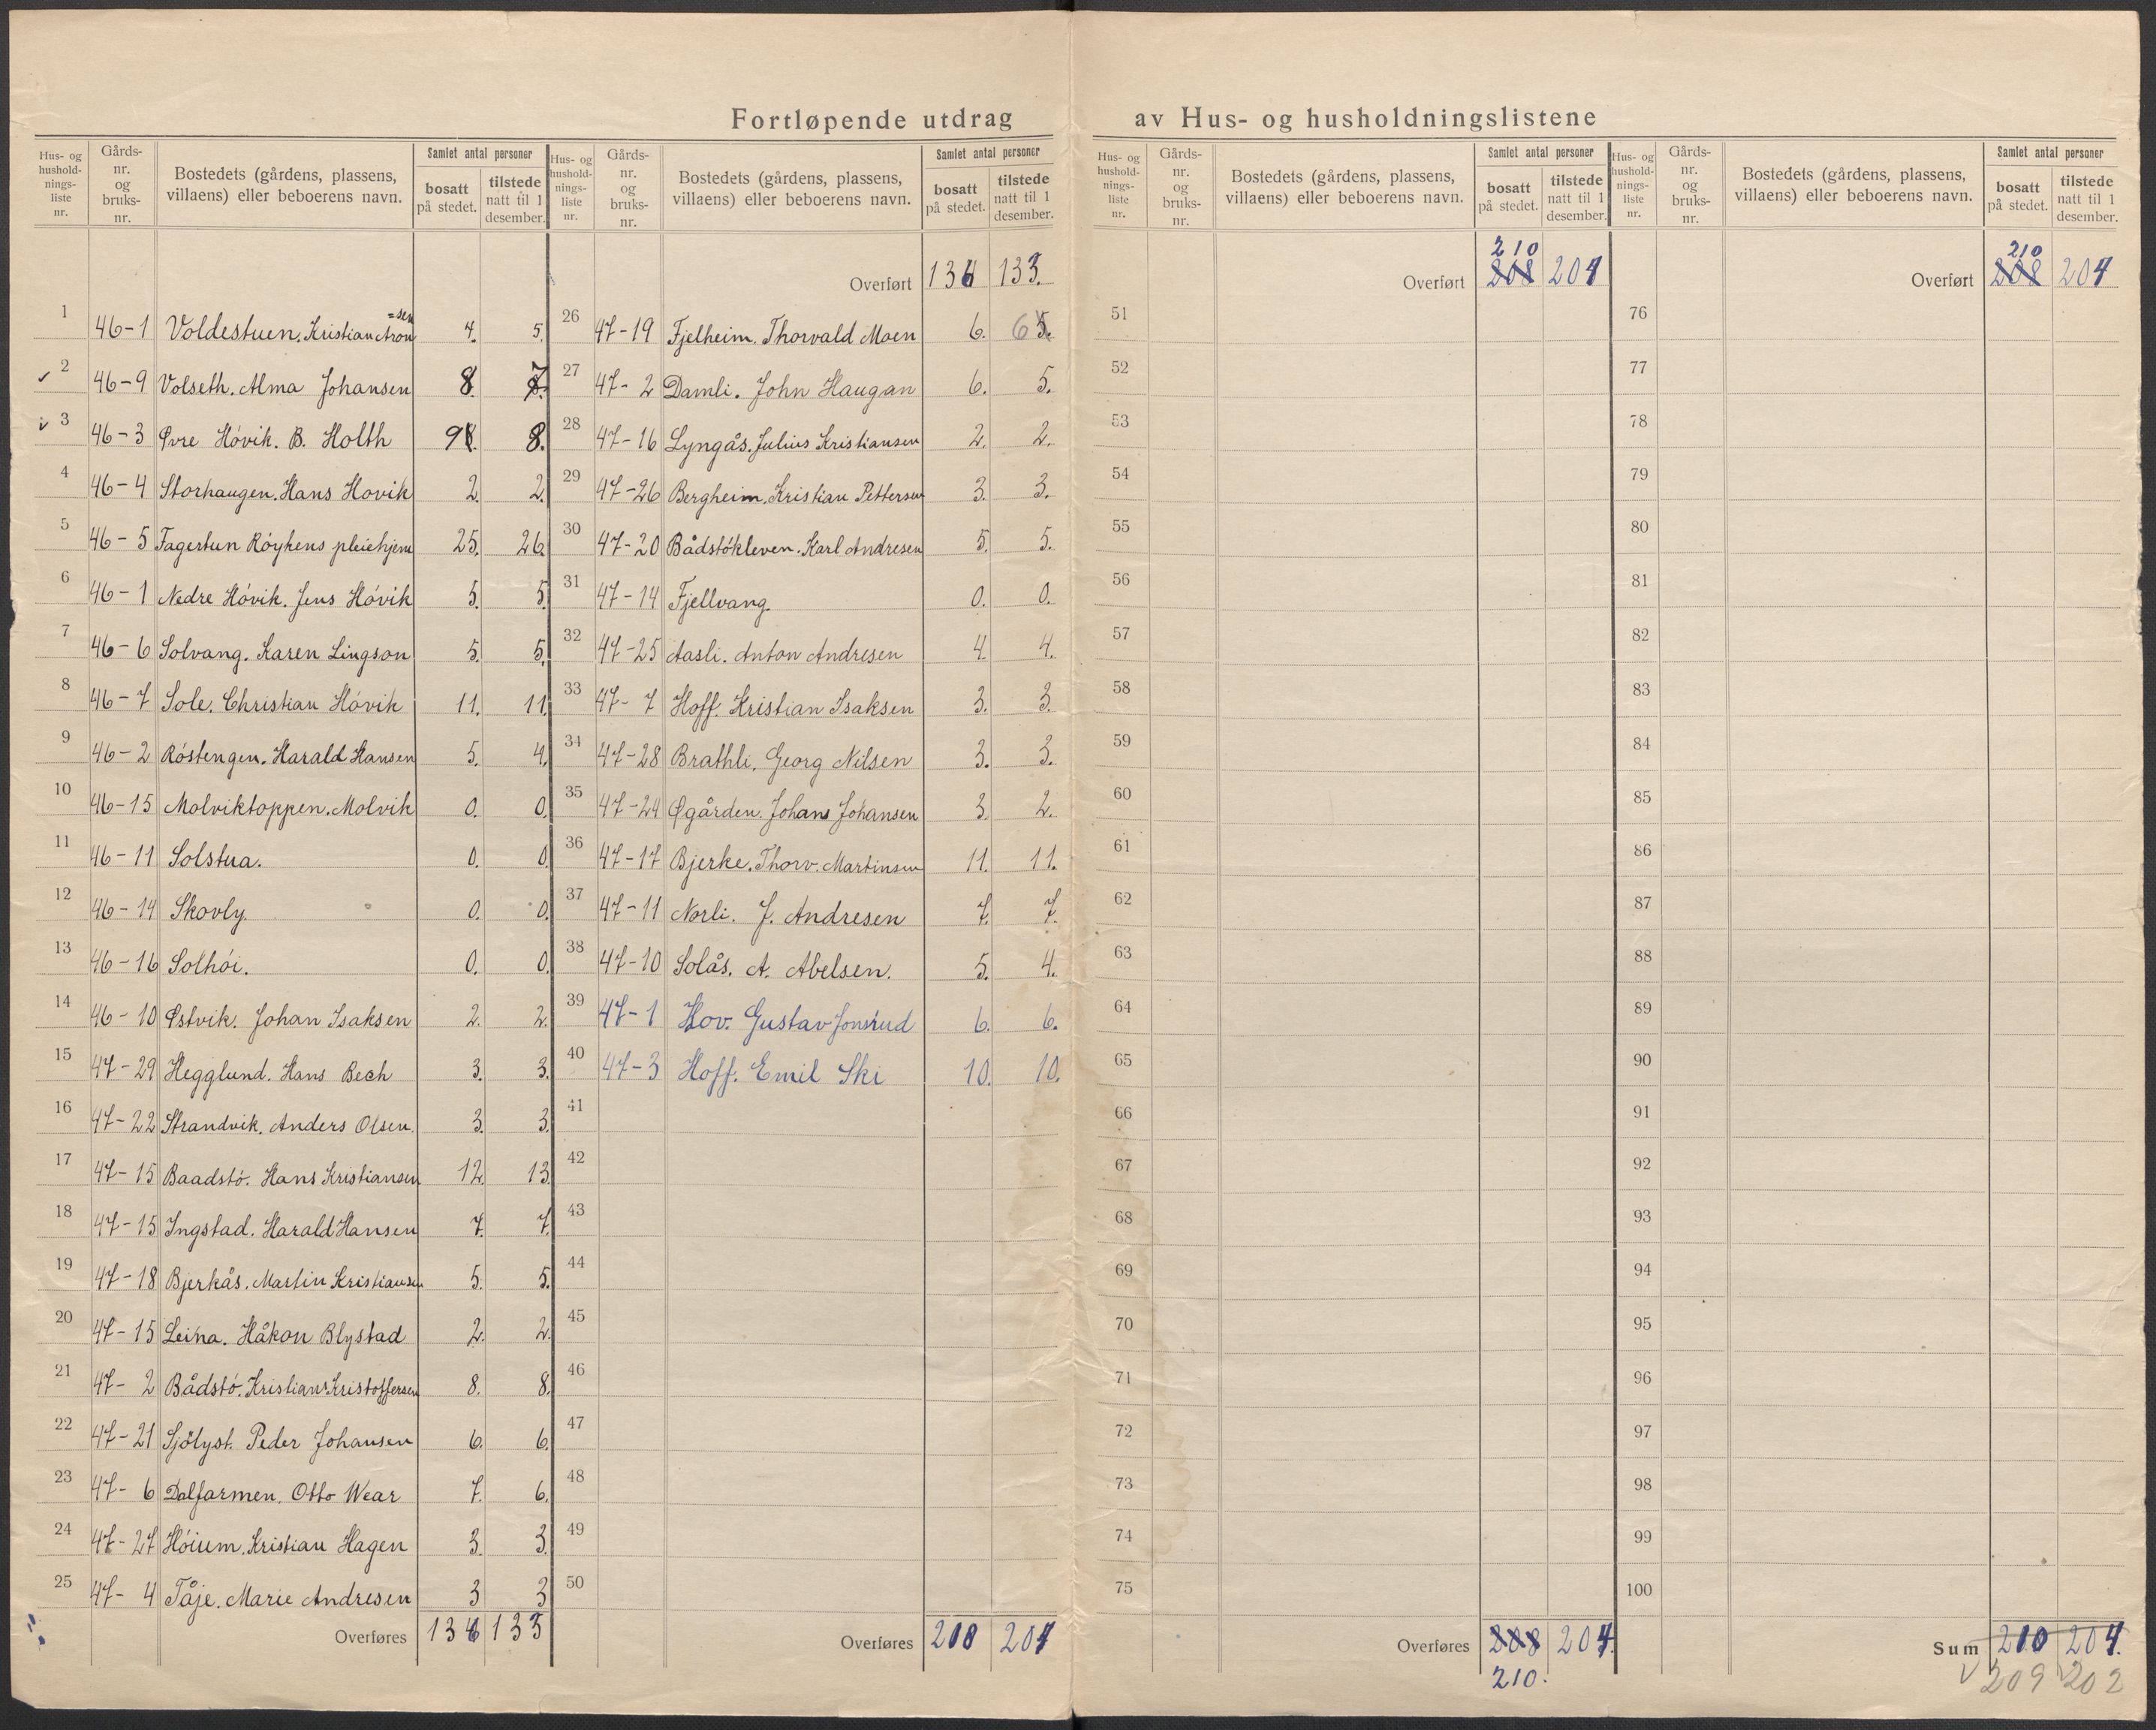 Fortløpende utdrag av Hus- og husholdningslistene
Hus- og hushold-nings-liste nr. | Gårds-nr. og bruks-nr. | Bostedets (gårdens, plassens, villaens) eller beboerens navn. | Samlet antal personer | bosatt på stedet. | tilstede natt til 1 desember.
1 46-1 Voldestuen. Kristian Aron=sen 4. 5.
✓ 2 46-9 Volseth. Alma Johansen 8. 7.
v 3 46-3 Øvre Hóvik. B. Holth 9 8.
4 46-4 Storhaugen. Hans Hovik 2. 2.
5 46-5 Fagertun Róykens pleiehjem 25. 26.
6 46-1 Nedre Hóvik. Jens Hóvik 5. 5.
7 46-6 Solvang. Karen Lingson 5. 5.
8 46-7 Sole. Christian Hóvik 11. 11.
9 46-2 Róstengen. Harald Hansen 5. 4.
10 46-15 Molviktoppen. Molvik 0. 0.
11 46-11 Solstua. 0. 0.
12 46-14 Skovly. 0. 0.
13 46-16 Solhói. 0. 0.
14 46-10 Østvik. Johan Isaksen 2. 2.
15 47-29 Hegglund. Hans Bech 3. 3.
16 47-22 Strandvik. Anders Olsen. 3. 3.
17 47-15 Baadstó. Hans Kristiansen 12. 13.
18 47-15 Ingstad. Harald Hansen 7. 7.
19 47-18 Bjerkås. Martin Kristiansen 5. 5.
20 47-15 Leina. Håkon Blystad 2. 2.
21 47-2 Bådstó. Kristian Kristoffersen 8. 8.
22 47-21 Sjólyst. Peder Johansen 6. 6.
23 47-6 Dalfarmen. Otto Wear 7. 6.
24 47-27 Hóium. Kristian Hagen 3. 3.
25 47-4 Tåje. Marie Andresen 3 3
Overføres 136 133
Hus- og hushold-nings-liste nr. | Gårds-nr. og bruks-nr. | Bostedets (gårdens, plassens, villaens) eller beboerens navn. | Samlet antal personer | bosatt på stedet. | tilstede natt til 1 desember.
Overført 136 133.
26 47-19 Fjelheim. Thorvald Moen 6. 6 5.
27 47-2 Damli. John Haugan 6. 5.
28 47-16 Lyngås. Julius Kristiansen 2. 2.
29 47-26 Bergheim. Kristian Pettersen 3. 3.
30 47-20 Bådstókleven. Karl Andresen 5. 5.
31 47-14 Fjellvang. 0. 0.
32 47-25 Aasli. Anton Andresen 4. 4.
33 47-7 Hoff. Kristian Isaksen 3. 3.
34 47-28 Brathli. Georg Nilsen 3. 3.
35 47-24 Øgården. Johans Johansen 3. 2.
36 47-17 Bjerke. Thorv. Martinsen 11. 11.
37 47-11 Norli. J. Andresen 7. 7.
38 47-10 Solås. A. Abelsen. 5. 4.
39 47-1 Hov. Gustav Jonsrud 6. 6.
40 47-3 Hoff. Emil Ski 10. 10.
41
42
43
44
45
46
47
48
49
50
Overføres 210 204
Hus- og hushold-nings-liste nr. | Gårds-nr. og bruks-nr. | Bostedets (gårdens, plassens, villaens) eller beboerens navn. | Samlet antal personer | bosatt på stedet. | tilstede natt til 1 desember.
210
Overført 208 204
51
52
53
54
55
56
57
58
59
60
61
62
63
64
65
66
67
68
69
70
71
72
73
74
75
Overføres 208 204.
210.
Hus- og hushold-nings-liste nr. | Gårds-nr. og bruks-nr. | Bostedets (gårdens, plassens, villaens) eller beboerens navn. | Samlet antal personer | bosatt på stedet. | tilstede natt til 1 desember.
210
Overført 208 204
76
77
78
79
80
81
82
83
84
85
86
87
88
89
90
91
92
93
94
95
96
97
98
99
100
Sum 210 204.
v 209 v 202